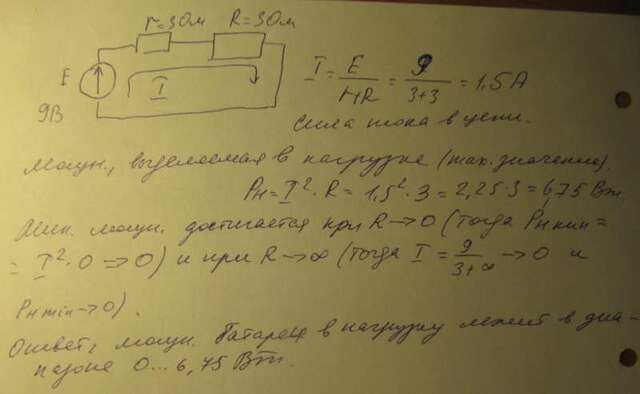 r=3Ом R=3Ом
E
9В
I
I = E/(r+R) = 9/(3+3) = 1,5А
Сила тока в цепи.
Мощн., выделяемая в нагрузке (max. значение).
Pн = I²·R = 1,5²·3 = 2,25·3 = 6,75 Вт.
Мин. мощн. достигается при R→0 (тогда Pн min =
= I²·0 → 0) и при R→∞ (тогда I = 9/(3+∞) → 0 и
Pн min → 0).
Ответ, мощн. батареи в нагрузку лежит в диа-
пазоне 0...6,75 Вт.